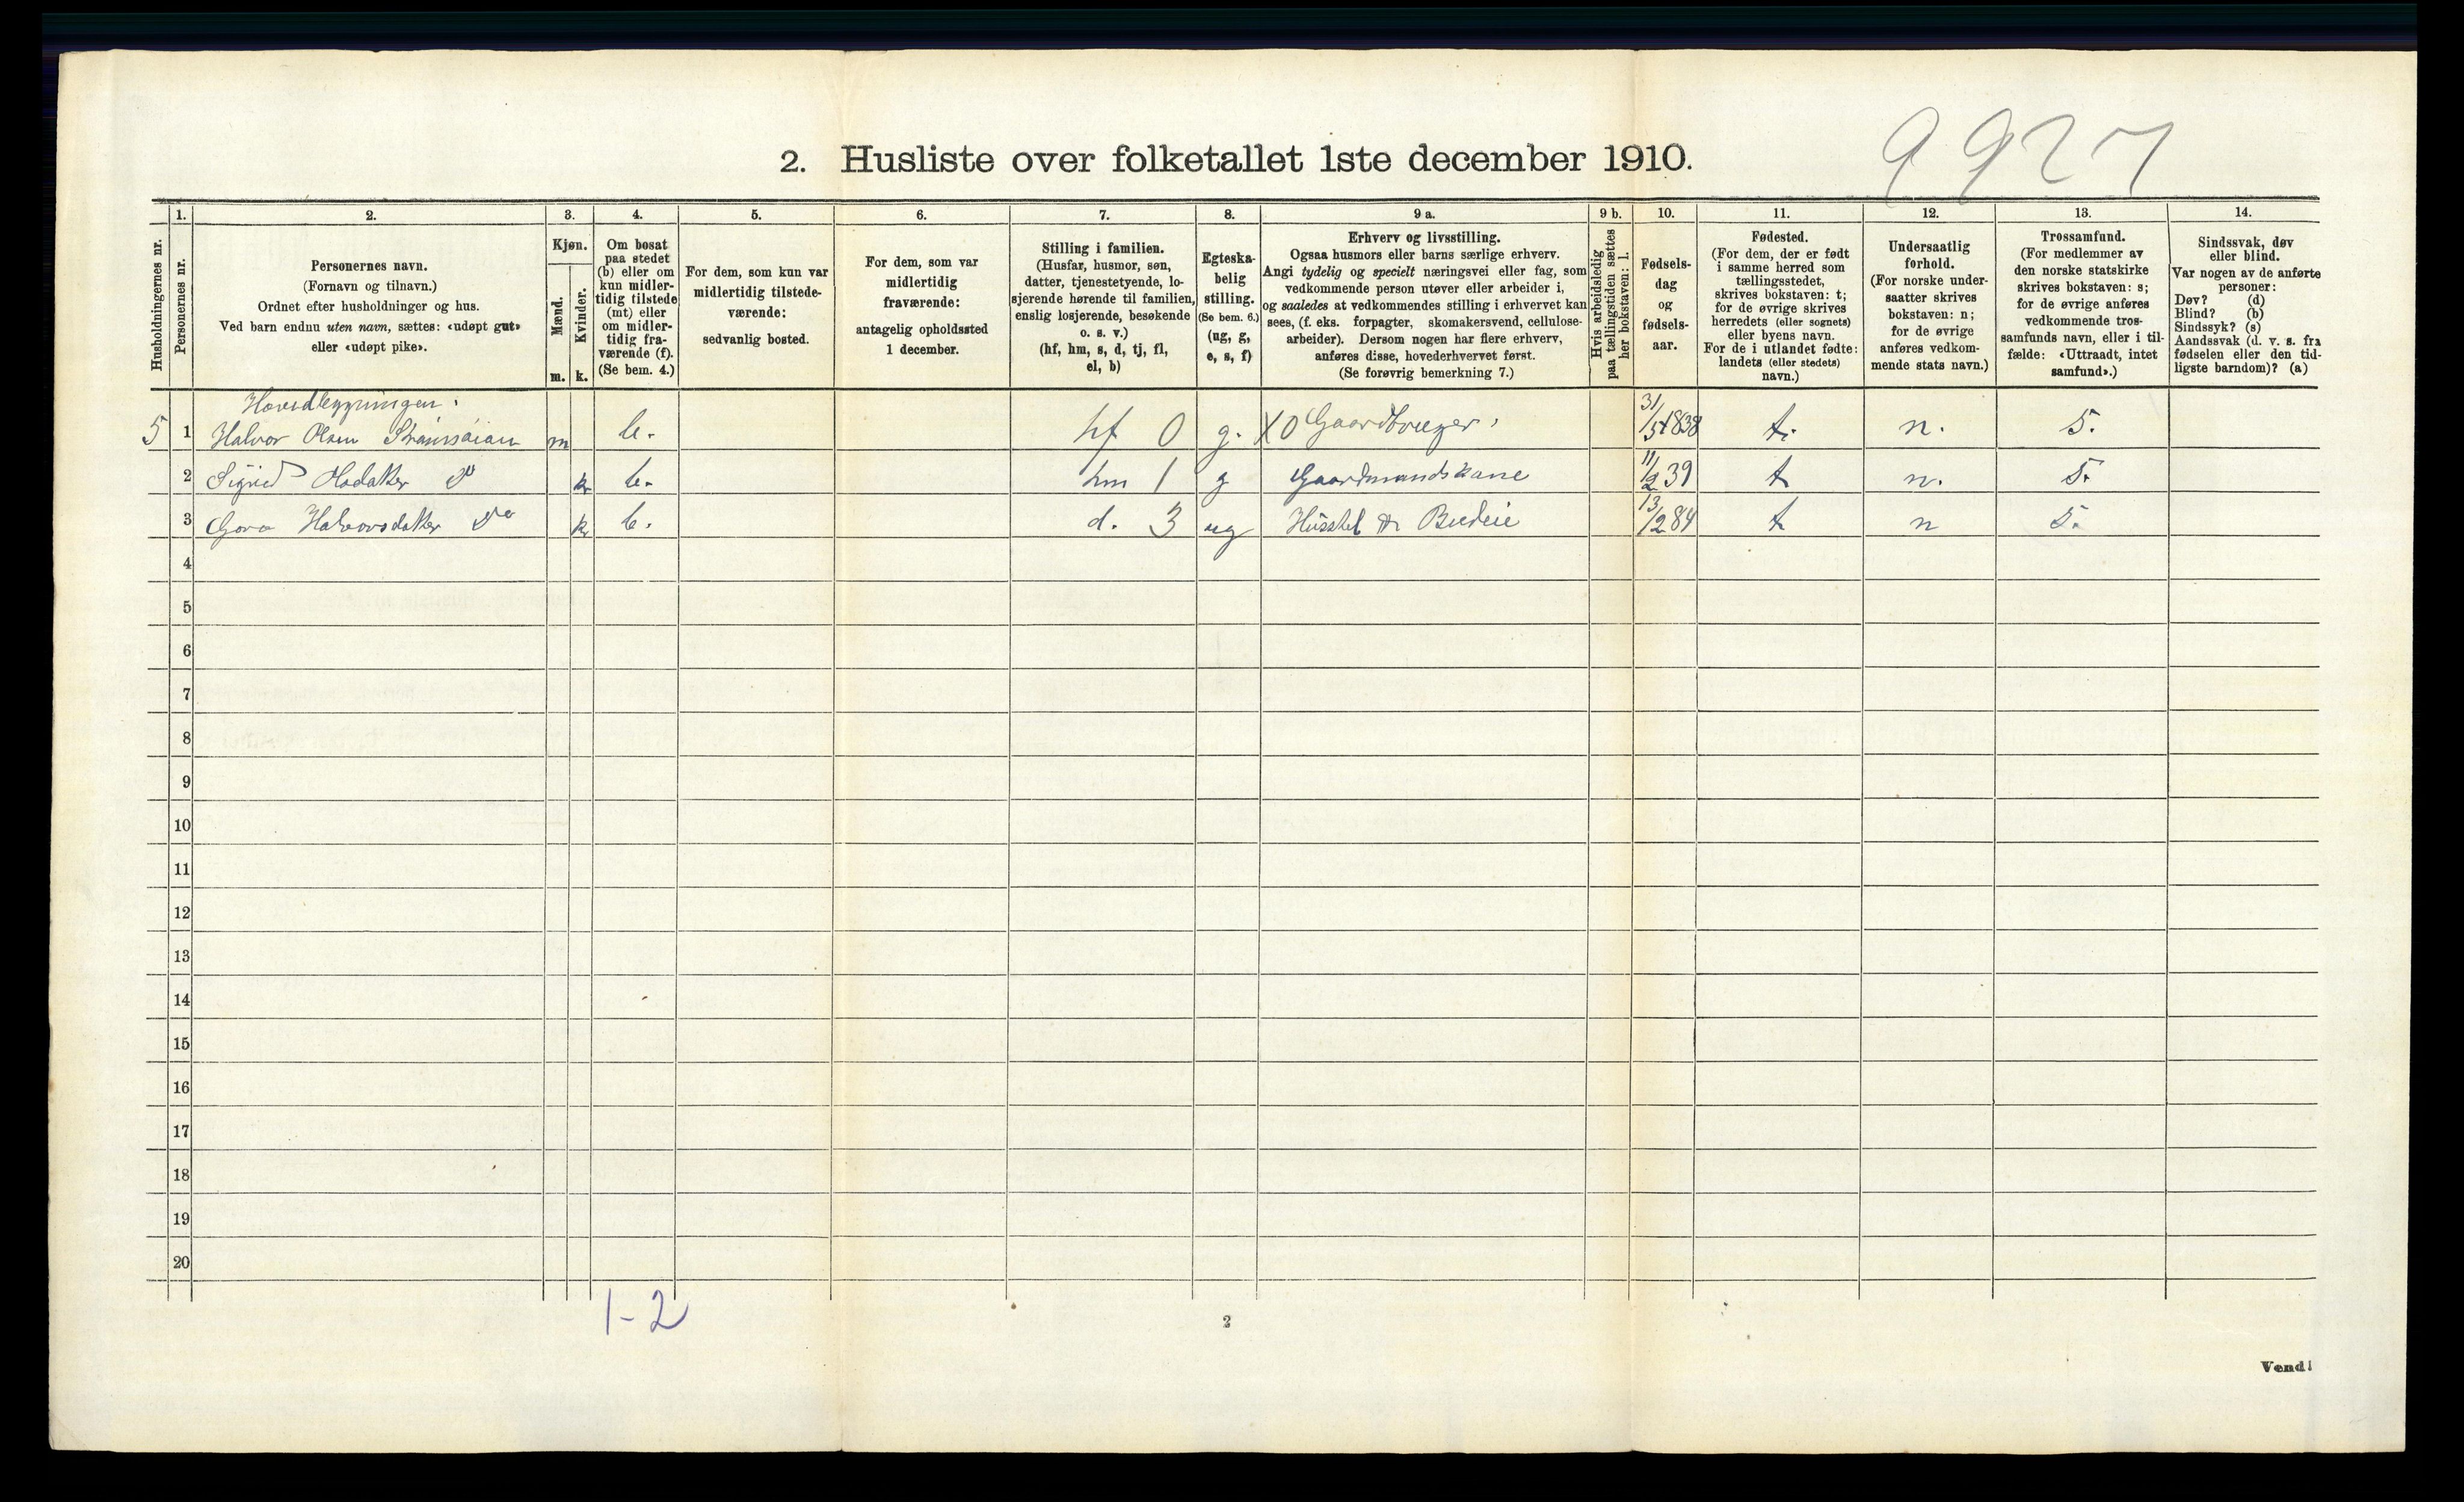 9927
2. Husliste over folketallet 1ste december 1910.
Husholdningernes nr.
1.
Personernes nr.
2.
Personernes navn.
(Fornavn og tilnavn.)
Ordnet efter husholdninger og hus.
Ved barn endnu uten navn, sættes: «udøpt gut»
eller «udøpt pike».
3.
Kjøn.
Mænd.
Kvinder.
m. k.
4.
Om bosat
paa stedet
(b) eller om
kun midler-
tidig tilstede
(mt) eller
om midler-
tidig fra-
værende (f).
(Se bem. 4.)
5.
For dem, som kun var
midlertidig tilstede-
værende:
sedvanlig bosted.
6.
For dem, som var
midlertidig
fraværende:
antagelig opholdssted
1 december.
7.
Stilling i familien.
(Husfar, husmor, søn,
datter, tjenestetyende, lo-
sjerende hørende til familien,
enslig losjerende, besøkende
o. s. v.)
(hf, hm, s, d, tj, fl,
el, b)
8.
Egteska-
belig
stilling.
(Se bem. 6.)
(ug, g,
e, s, f)
9 a.
Erhverv og livsstilling.
Ogsaa husmors eller barns særlige erhverv.
Angi tydelig og specielt næringsvei eller fag, som
vedkommende person utøver eller arbeider i,
og saaledes at vedkommendes stilling i erhvervet kan
sees, (f. eks. forpagter, skomakersvend, cellulose-
arbeider). Dersom nogen har flere erhverv,
anføres disse, hovederhvervet først.
(Se forøvrig bemerkning 7.)
9 b.
Hvis arbeidsledig
paa tællingstiden sættes
her bokstaven: l.
10.
Fødsels-
dag
og
fødsels-
aar.
11.
Fødested.
(For dem, der er født
i samme herred som
tællingsstedet,
skrives bokstaven: t;
for de øvrige skrives
herredets (eller sognets)
eller byens navn.
For de i utlandet fødte:
landets (eller stedets)
navn.)
12.
Undersaatlig
forhold.
(For norske under-
saatter skrives
bokstaven: n;
for de øvrige
anføres vedkom-
mende stats navn.)
13.
Trossamfund.
(For medlemmer av
den norske statskirke
skrives bokstaven: s;
for de øvrige anføres
vedkommende tros-
samfunds navn, eller i til-
fælde: «Uttraadt, intet
samfund».)
14.
Sindssvak, døv
eller blind.
Var nogen av de anførte
personer:
Døv? (d)
Blind? (b)
Sindssyk? (s)
Aandssvak (d. v. s. fra
fødselen eller den tid-
ligste barndom)? (a)
Hovedbygningen.
5 1 Halvor Olsen m b. hf 0 g. X0 Gaardbruger 31/5 1838 t. n. s.
2 Sigrid Do k b. hm 1 g Gaardmandskone 11/2 39 t n. s.
3 Halvorsdatter Do k b. d. 3 ug Husstel Budeie 13/2 84 t n s.
4
5
6
7
8
9
10
11
12
13
14
15
16
17
18
19
20
1-2
2
Vend!